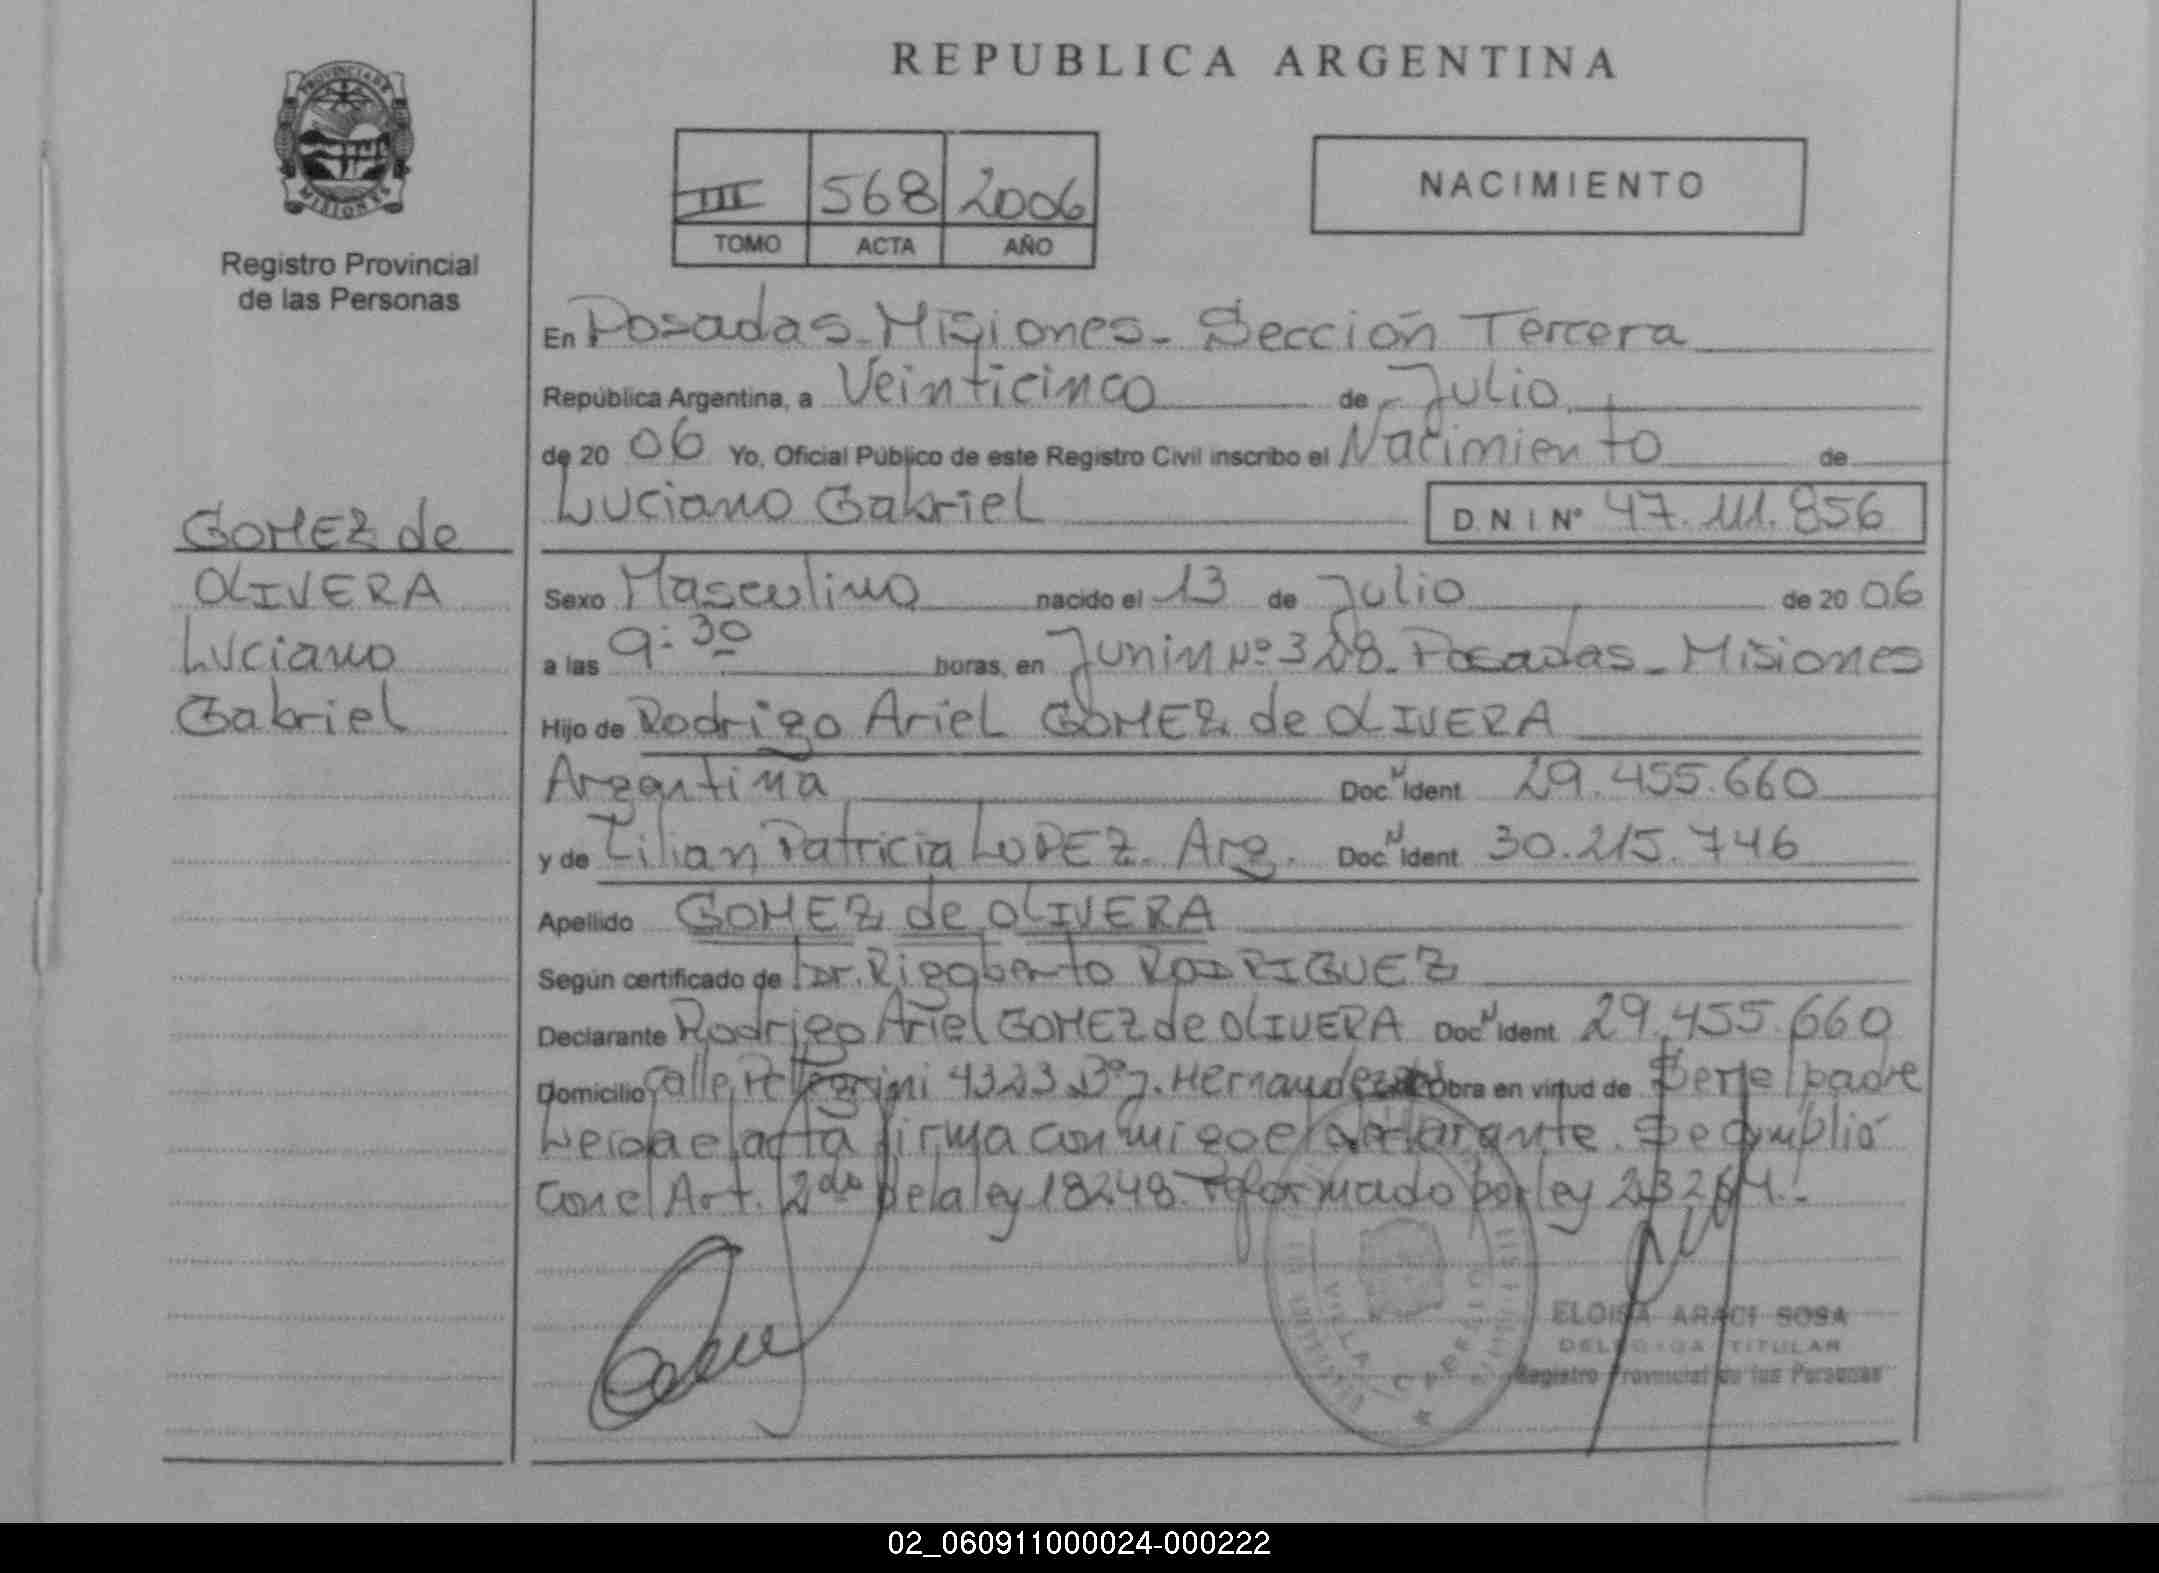 REPUBLICA ARGENTINA
PROVINCIA DE
MISIONES
Registro Provincial
de las Personas
III 568 2006
TOMO ACTA AÑO
NACIMIENTO
En Posadas - Misiones - Sección Tercera
República Argentina, a Veinticinco de Julio
de 20 06 Yo, Oficial Público de este Registro Civil inscribo el Nacimiento de
Luciano Gabriel D.N.I Nº 47.111.856
GOMEZ de
OLIVERA
Luciano
Gabriel
Sexo Masculino nacido el 13 de Julio de 20 06
a las 9:30 horas, en Junin Nº 328 - Posadas - Misiones
Hijo de Rodrigo Ariel GOMEZ de OLIVERA
Argentina Doc. N Ident 29.455.660
y de Lilian Patricia LOPEZ - Arg. Doc. N Ident 30.215.746
Apellido GOMEZ de OLIVERA
Según certificado de Dr. Rigoberto RODRIGUEZ
Declarante Rodrigo Ariel GOMEZ de OLIVERA Doc. N Ident 29.455.660
Domicilio Calle Pellegrini 4323 Bº J. Hernandez obra en virtud de Ser el padre
Leida el acta firma conmigo el declarante. Se cumplió
con el Art. 2do de la ley 18248. Reformado por ley 23264.
VILLA CABELLO
ELOISA ARACI SOSA
DELEGADA TITULAR
Registro Provincial de las Personas
02_060911000024-000222